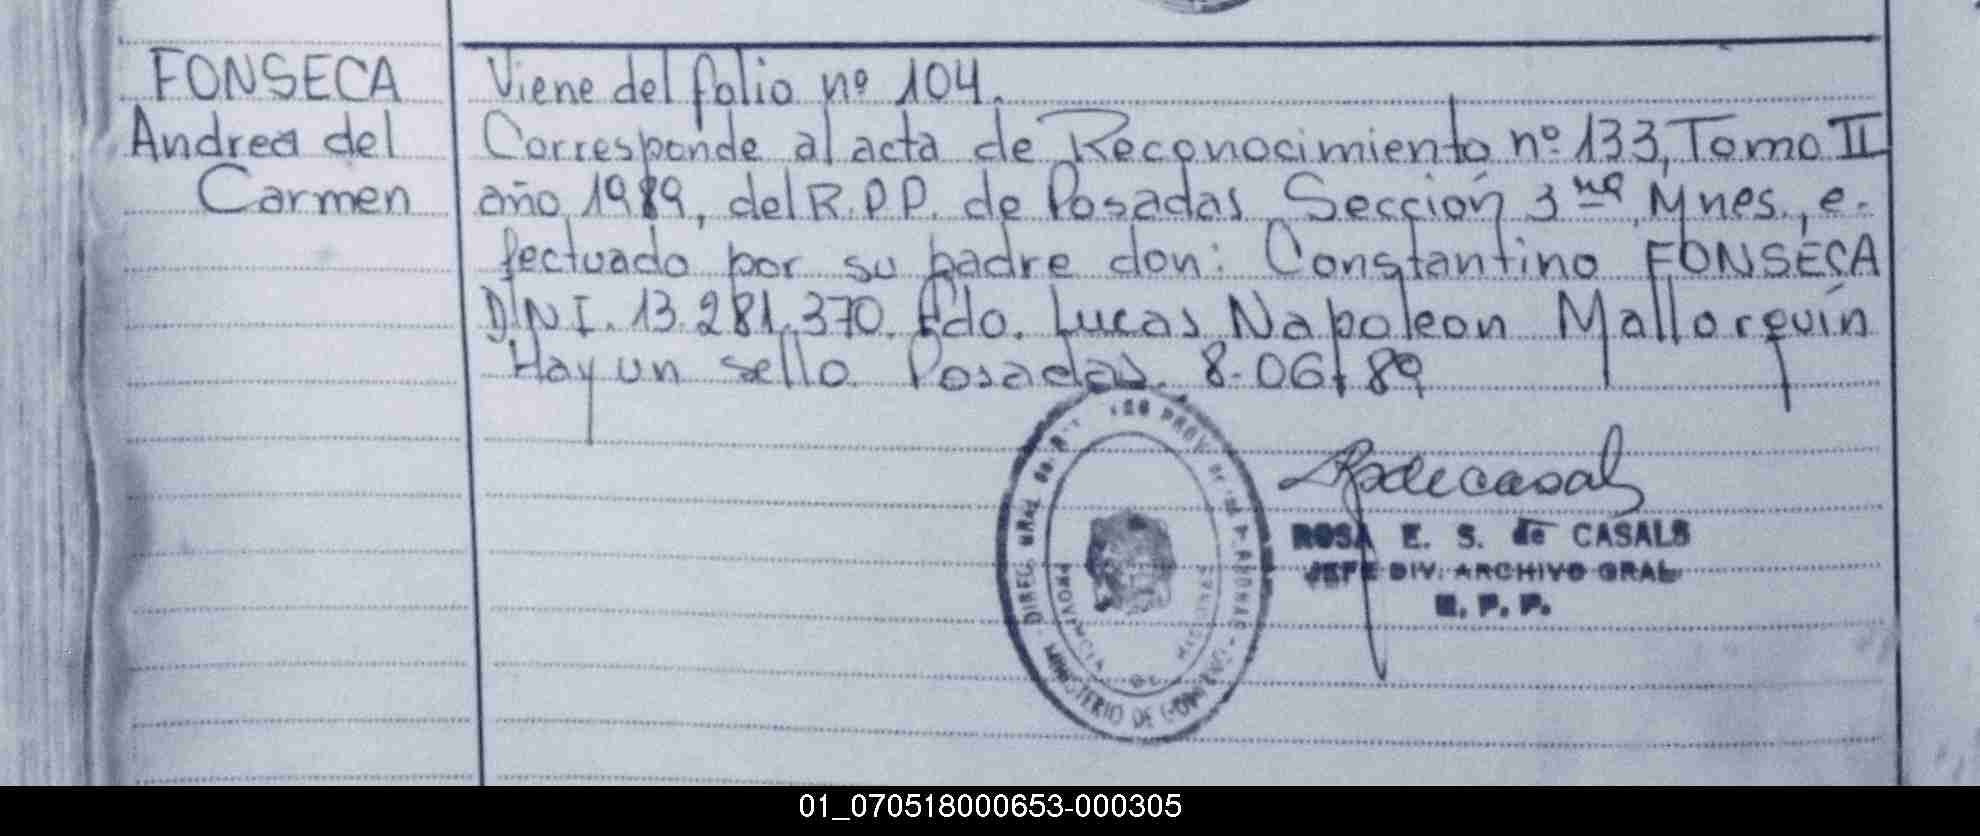 FONSECA
Andrea del
Carmen
Viene del folio nº 104.
Corresponde al acta de Reconocimiento nº 133, Tomo II
año 1989, del R.P.P. de Posadas Sección 3ra, Mnes., e-
fectuado por su padre don: Constantino FONSECA
DNI. 13.281.370. Fdo. Lucas Napoleon Mallorquín
Hay un sello. Posadas. 8-06-89
ROSA E. S. de CASALS
JEFE DIV. ARCHIVO GRAL
R. P. P.
DIREC. GRAL
PROV.
MINISTERIO DE GOBIERNO
PROVINCIA DE MISIONES
01_070518000653-000305